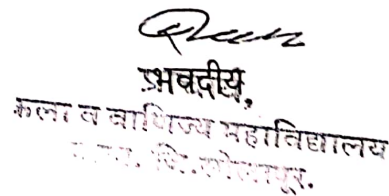 प्रभवदीय,
कला व वाणिज्य महाविद्यालय
जि.सोलापूर.